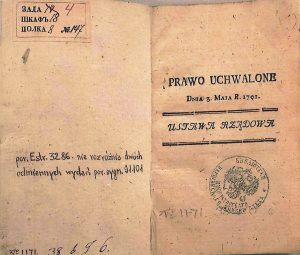 ЗАЛА 4
ШКАФЪ 18
ПОЛКА 8 № 147
por. Estr. 32.86 - nie rozróżnia dwóch
odmiennych wydań por. sygn. 31101
№ 1171.
PRAWO UCHWALONE
DNIA 3. MAIA R. 1791.
USTAWA RZĄDOWA
№ 1171.